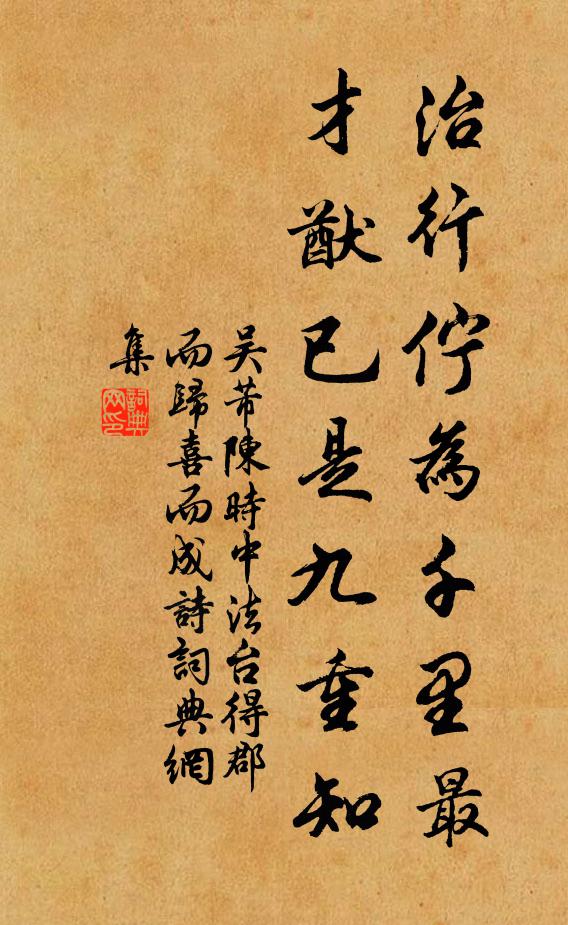 治行佇為千里最
才猷已是九重知
吴芾陳時中法台得郡
而歸喜而成詩詞典網
集
詞典網印